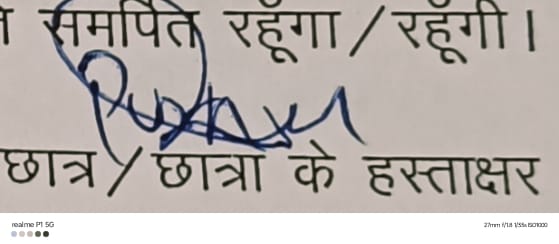 समर्पित रहूँगा / रहूँगी।
छात्र / छात्रा के हस्ताक्षर
realme P1 5G
27mm f/1.8 1/33s ISO1000